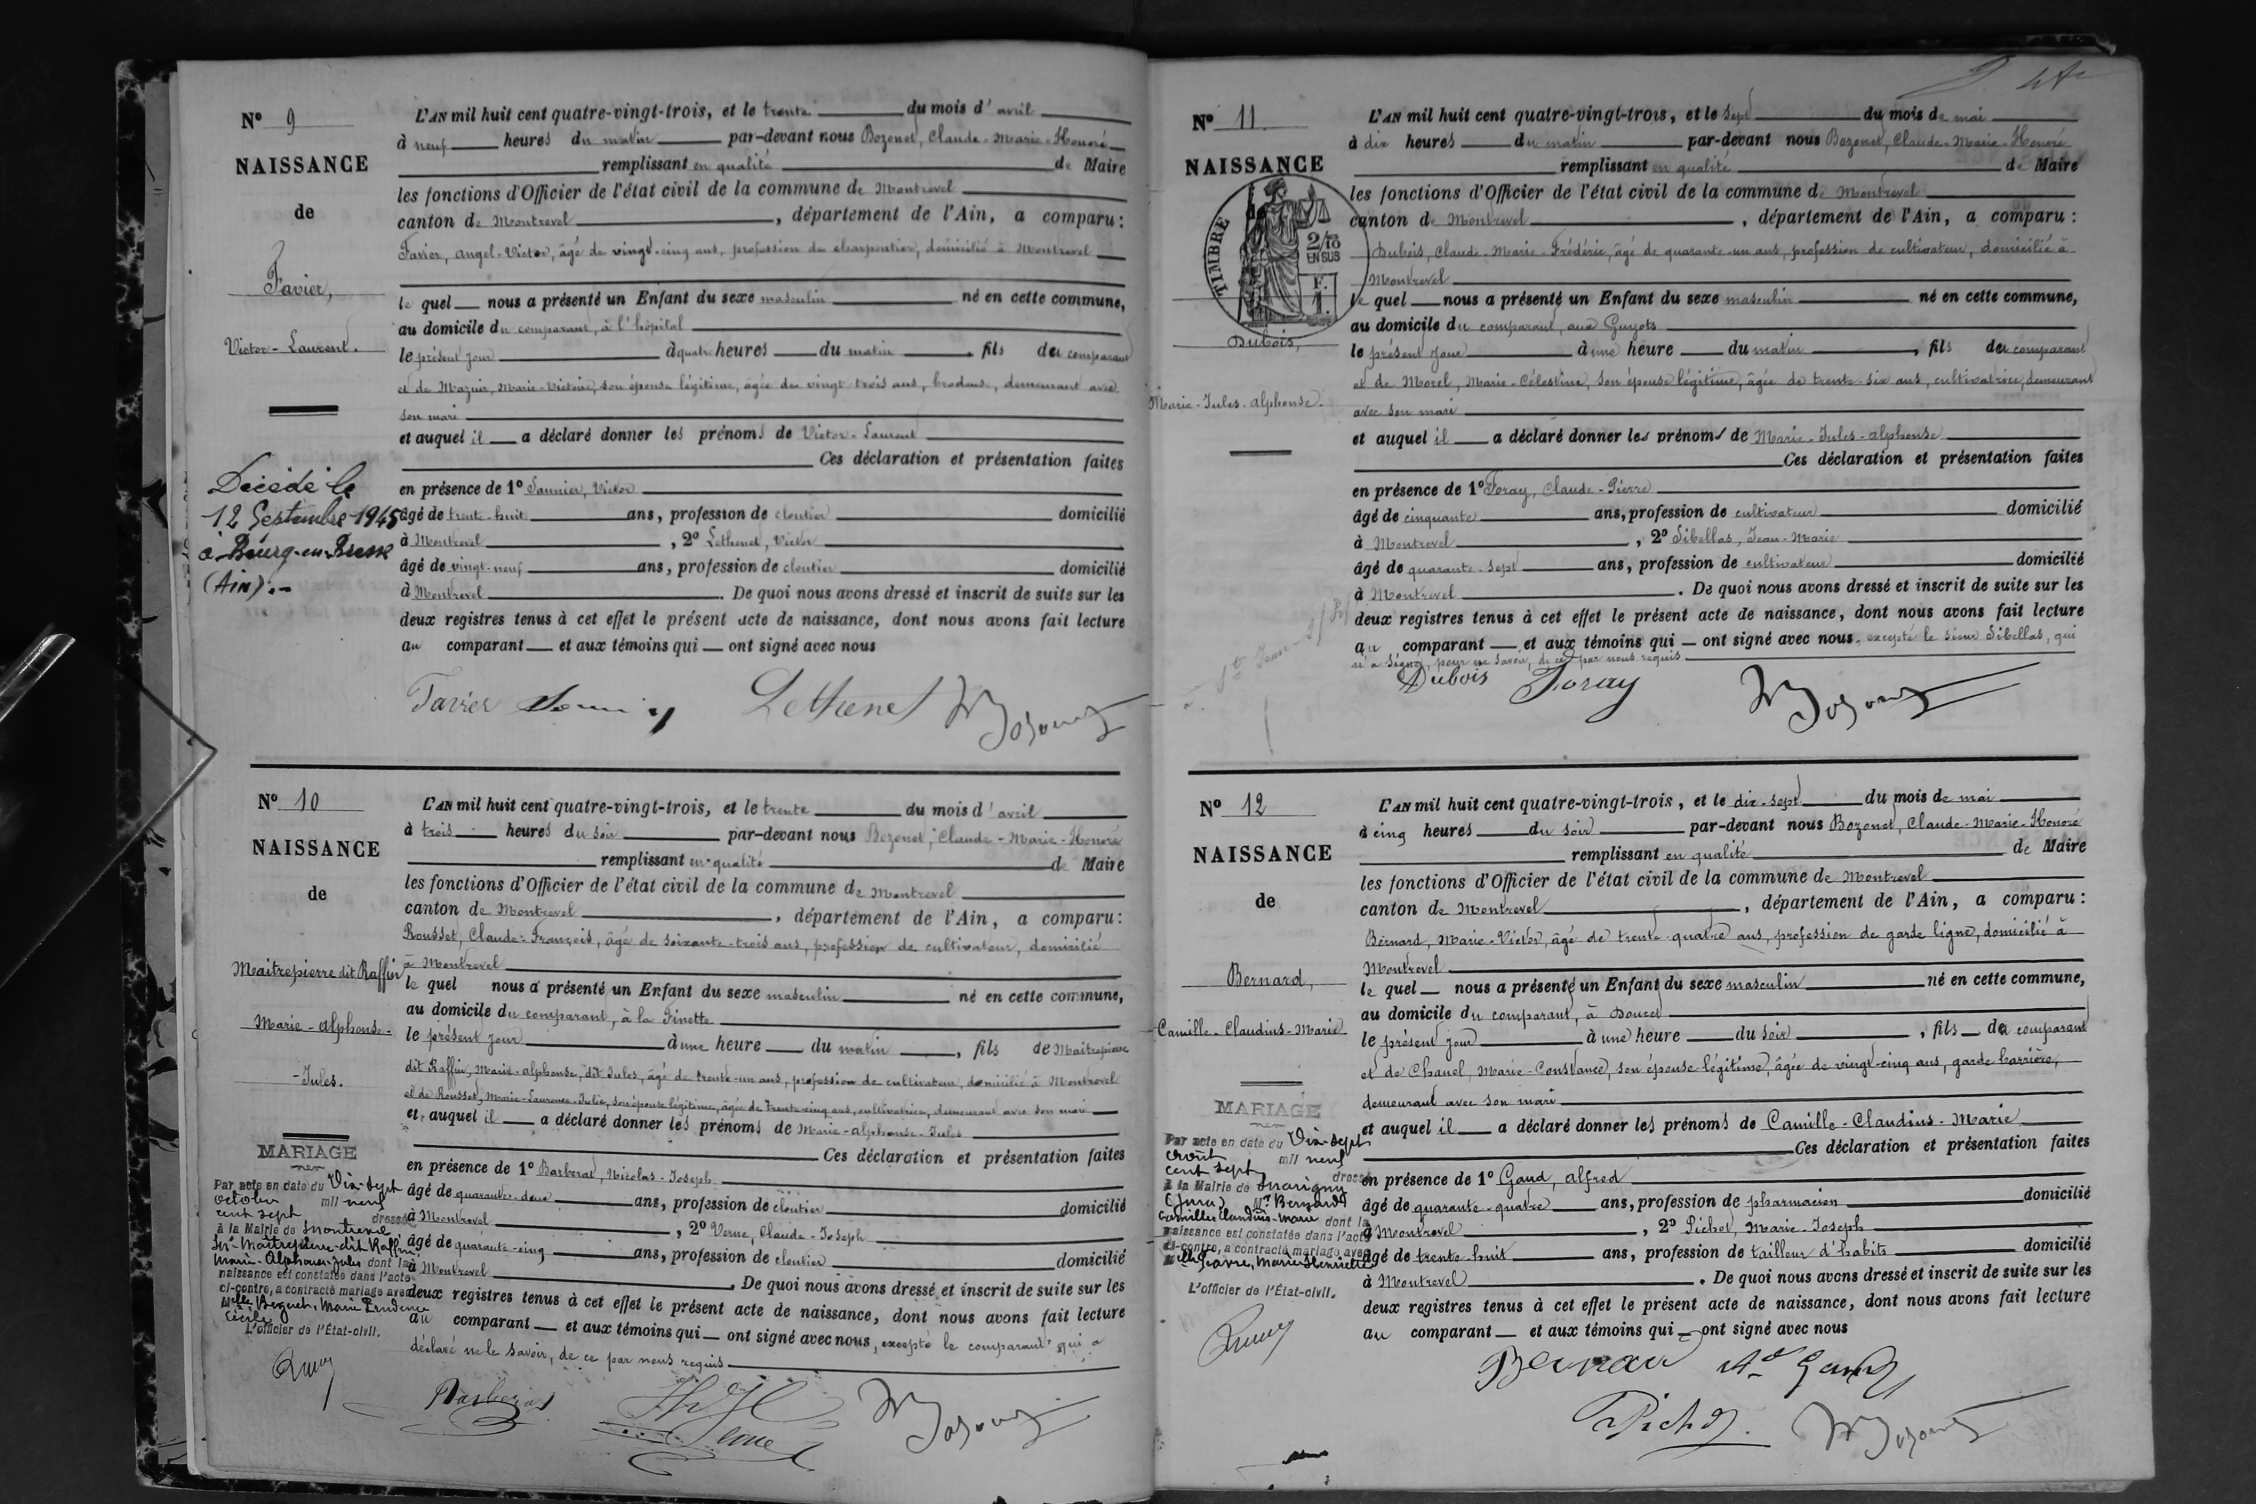 Nº 9
NAISSANCE
de
Favier,
Victor-Laurent.
Décédé le
12 Septembre 1945
à Bourg-en-Bresse
(Ain).-
L'AN mil huit cent quatre-vingt-trois, et le trente du mois d'avril
à neuf heures du matin par-devant nous Bozonet, Claude-Marie-Honoré
remplissant en qualité de Maire
les fonctions d'Officier de l'état civil de la commune de Montrevel
canton de Montrevel, département de l'Ain, a comparu:
Favier, Angel-Victor, âgé de vingt-cinq ans, profession de charpentier, domicilié à Montrevel
le quel nous a présenté un Enfant du sexe masculin né en cette commune,
au domicile du comparant, à l'hôpital
le présent jour à quatre heures du matin, fils du comparant
et de Mazuir, Marie-Victoire, son épouse légitime, âgée de vingt trois ans, brodeuse, demeurant avec
son mari
et auquel il a déclaré donner les prénoms de Victor-Laurent
Ces déclaration et présentation faites
en présence de 1º Saunier, Victor
âgé de trente-huit ans, profession de cloutier domicilié
à Montrevel, 2º Lethenet, Victor
âgé de vingt-neuf ans, profession de cloutier domicilié
à Montrevel. De quoi nous avons dressé et inscrit de suite sur les
deux registres tenus à cet effet le présent acte de naissance, dont nous avons fait lecture
au comparant et aux témoins qui ont signé avec nous
Favier Lethenet Bozonet
Nº 10
NAISSANCE
de
Maitrepierre dit Raffin
Marie-Alphonse-
-Jules.
MARIAGE
Par acte en date du Dix-sept
octobre mil neuf
cent sept dressé
à la Mairie de Montrevel
Mr Maitrepierre-dit Raffin
Marie-Alphonse-Jules dont la
naissance est constatée dans l'acte
ci-contre, a contracté mariage avec
Melle Berguet, Marie Prudence
Cécile
L'officier de l'État-civil.
L'AN mil huit cent quatre-vingt-trois, et le trente du mois d'avril
à trois heures du soir par-devant nous Bozonet, Claude-Marie-Honoré
remplissant en qualité de Maire
les fonctions d'Officier de l'état civil de la commune de Montrevel
canton de Montrevel, département de l'Ain, a comparu:
Rousset, Claude-François, âgé de soixante-trois ans, profession de cultivateur, domicilié
à Montrevel
le quel nous a présenté un Enfant du sexe masculin né en cette commune,
au domicile du comparant, à la Ginette
le présent jour à une heure du matin, fils de Maitrepierre
dit Raffin, Marie-Alphonse, dit Jules, âgé de trente-un ans, profession de cultivateur, domicilié à Montrevel
et de Rousset, Marie-Laurence-Julie, son épouse légitime, âgée de trente-cinq ans, cultivatrice, demeurant avec son mari
et auquel il a déclaré donner les prénoms de Marie-Alphonse-Jules
Ces déclaration et présentation faites
en présence de 1º Barberat, Nicolas-Joseph
âgé de quarante-deux ans, profession de cloutier domicilié
à Montrevel, 2º Verne, Claude-Joseph
âgé de quarante-cinq ans, profession de cloutier domicilié
à Montrevel. De quoi nous avons dressé et inscrit de suite sur les
deux registres tenus à cet effet le présent acte de naissance, dont nous avons fait lecture
au comparant et aux témoins qui ont signé avec nous, excepté le comparant qui a
déclaré ne le savoir, de ce par nous requis
Barberat Verne Bozonet
Nº 11
NAISSANCE
de
TIMBRE
2/10
EN SUS
F.
1.
Dubois,
Marie-Jules-Alphonse.
L'AN mil huit cent quatre-vingt-trois, et le sept du mois de mai
à dix heures du matin par-devant nous Bozonet, Claude-Marie-Honoré
remplissant en qualité de Maire
les fonctions d'Officier de l'état civil de la commune de Montrevel
canton de Montrevel, département de l'Ain, a comparu:
Dubois, Claude-Marie-Frédéric, âgé de quarante-un ans, profession de cultivateur, domicilié à
Montrevel
le quel nous a présenté un Enfant du sexe masculin né en cette commune,
au domicile du comparant, aux Guyots
le présent jour à une heure du matin, fils du comparant
et de Morel, Marie-Célestine, son épouse légitime, âgée de trente-six ans, cultivatrice, demeurant
avec son mari
et auquel il a déclaré donner les prénoms de Marie-Jules-Alphonse
Ces déclaration et présentation faites
en présence de 1º Foray, Claude-Pierre
âgé de cinquante ans, profession de cultivateur domicilié
à Montrevel, 2º Sibellas, Jean-Marie
âgé de quarante-sept ans, profession de cultivateur domicilié
à Montrevel. De quoi nous avons dressé et inscrit de suite sur les
deux registres tenus à cet effet le présent acte de naissance, dont nous avons fait lecture
au comparant et aux témoins qui ont signé avec nous, excepté le sieur Sibellas, qui
n'a signé, pour ne savoir, de ce par nous requis
Dubois Foray Bozonet
Nº 12
NAISSANCE
de
Bernard,
Camille-Claudius-Marie
MARIAGE
Par acte en date du Dix-sept
août mil neuf
cent sept dressé
à la Mairie de Marigny
(Jura) Mr Bernard
Camille Claudius-Marie dont la
naissance est constatée dans l'acte
ci-contre, a contracté mariage avec
Melle Favre, Marie Henriette
L'officier de l'État-civil.
L'AN mil huit cent quatre-vingt-trois, et le dix-sept du mois de mai
à cinq heures du soir par-devant nous Bozonet, Claude-Marie-Honoré
remplissant en qualité de Maire
les fonctions d'Officier de l'état civil de la commune de Montrevel
canton de Montrevel, département de l'Ain, a comparu:
Bernard, Marie-Victor, âgé de trente-quatre ans, profession de garde ligne, domicilié à
Montrevel
le quel nous a présenté un Enfant du sexe masculin né en cette commune,
au domicile du comparant, à Doucet
le présent jour à une heure du soir, fils du comparant
et de Chanel, Marie-Constance, son épouse légitime, âgée de vingt-cinq ans, garde barrière,
demeurant avec son mari
et auquel il a déclaré donner les prénoms de Camille-Claudius-Marie
Ces déclaration et présentation faites
en présence de 1º Gaud, Alfred
âgé de quarante-quatre ans, profession de pharmacien domicilié
à Montrevel, 2º Pichod, Marie-Joseph
âgé de trente-huit ans, profession de tailleur d'habits domicilié
à Montrevel. De quoi nous avons dressé et inscrit de suite sur les
deux registres tenus à cet effet le présent acte de naissance, dont nous avons fait lecture
au comparant et aux témoins qui ont signé avec nous
Bernard Ad Gaud
Pichod Bozonet